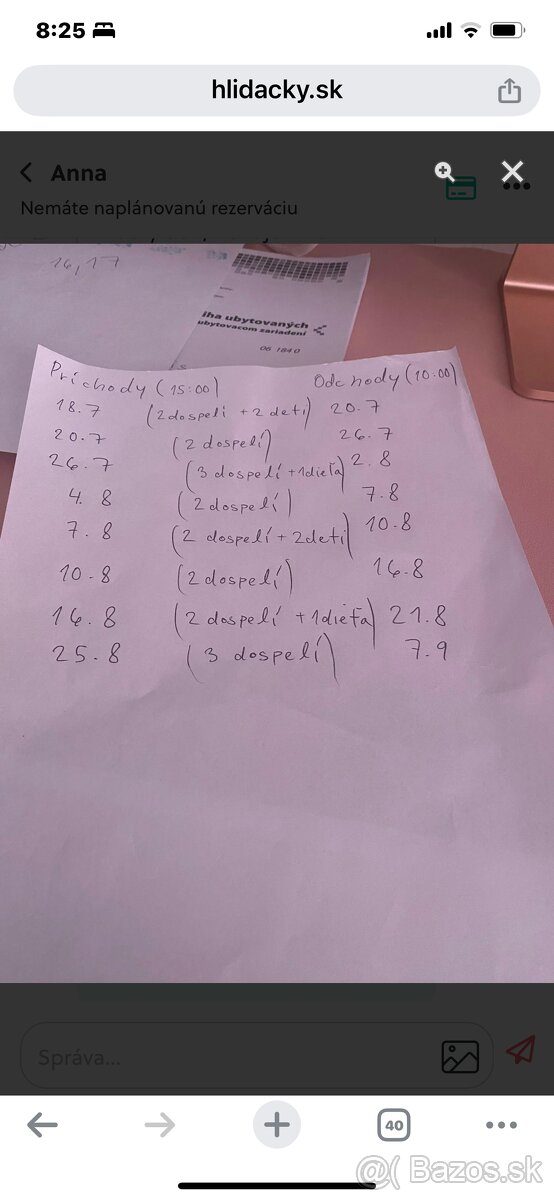 8:25
hlidacky.sk
Anna
Nemáte naplánovanú rezerváciu
16, 17
iha ubytovaných
ubytovacom zariadení
06 184 0
Príchody (15:00) Odchody (10:00)
18.7 (2 dospelí + 2 deti) 20.7
20.7 (2 dospelí) 26.7
26.7 (3 dospelí + 1 dieťa) 2.8
4.8 (2 dospelí) 7.8
7.8 (2 dospelí + 2 deti) 10.8
10.8 (2 dospelí) 16.8
16.8 (2 dospelí + 1 dieťa) 21.8
25.8 (3 dospelí) 7.9
Správa...
40
@( Bazos.sk